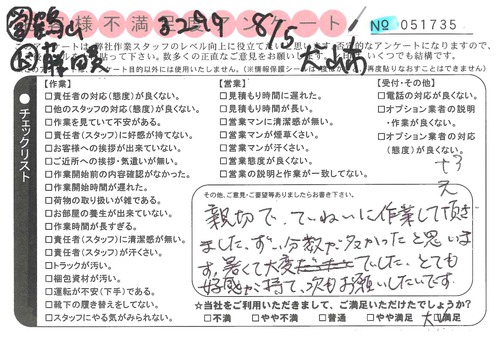 様不満 アンケート 8/5 № 051735
このアンケートは弊社作業スタッフのレベル向上に役立てたい思います。否定的なアンケートになりますので、
貼って下さい。数多くの正直なご意見をお願いします。いくつでも結構です。
アンケート目的以外には使用いたしません。(※情報保護シールは再度貼りなおすことはできません)
チェックリスト
【作業】
□責任者の対応(態度)が良くない。
□他のスタッフの対応(態度)が良くない。
□作業を見ていて不安がある。
□責任者(スタッフ)に好感が持てない。
□お客様への挨拶が出来ていない。
□ご近所への挨拶・気遣いが無い。
□作業開始前の内容確認がなかった。
□作業開始時間が遅れた。
□荷物の取り扱いが雑である。
□お部屋の養生が出来ていない。
□作業時間が長すぎる。
□責任者(スタッフ)に清潔感が無い。
□責任者(スタッフ)が汗くさい。
□トラックが汚い。
□梱包資材が汚い。
□運転が不安(下手)である。
□靴下の履き替えをしてない。
□スタッフにやる気がみられない。
【営業】
□見積もり時間に遅れた。
□見積もり時間が長い。
□営業マンに清潔感が無い。
□営業マンが煙草くさい。
□営業マンが汗くさい。
□営業態度が良くない。
□営業の説明と作業が一致してない。
【受付・その他】
□電話の対応が良くない。
□オプション業者の説明
・作業が良くない。
□オプション業者の対応
(態度)が良くない。
その他、ご意見・ご要望等ありましたらお書き下さい。
親切で、ていねいに作業して頂き
ました。分数が多かったと思いま
す。暑くて大変でした。とても
好感が持て、次もお願いしたいです。
☆当社をご利用いただきまして、ご満足いただけたでしょうか?
□不満 □やや不満 □普通 □やや満足 □大満足